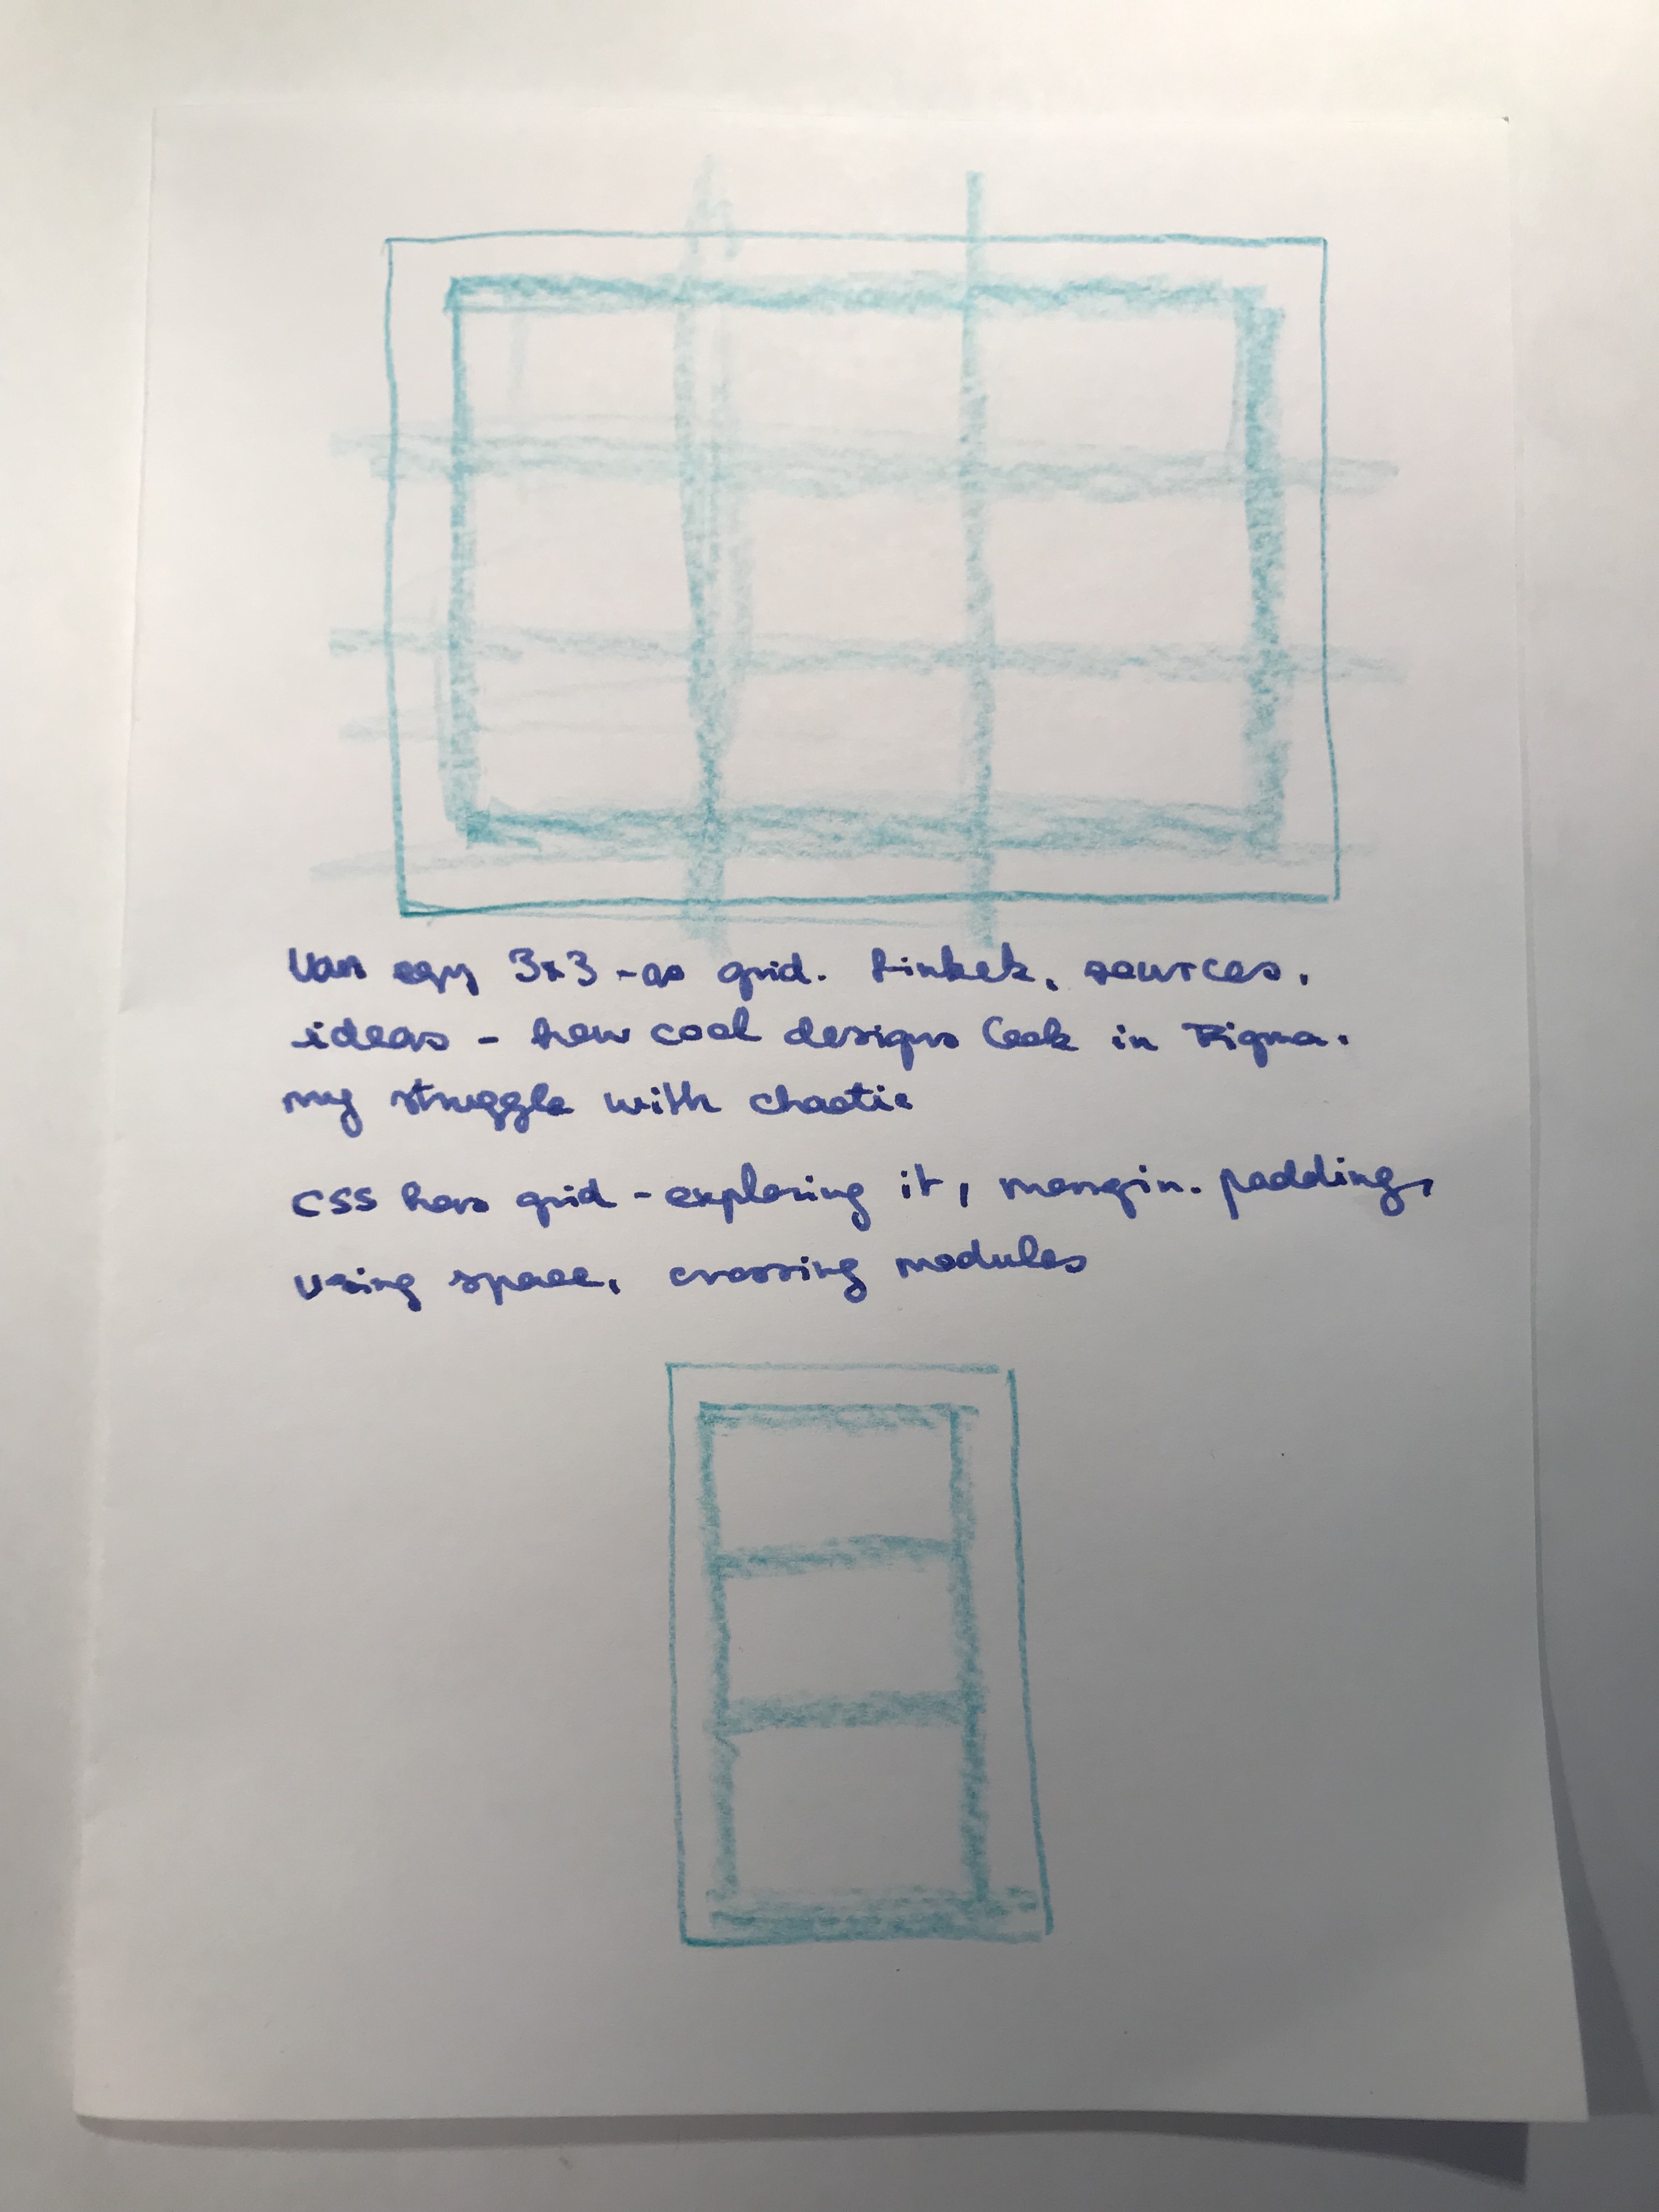 Van egy 3x3-as grid. Linkek, sources,
ideas - how cool designs look in Figma.
my struggle with chaotic
CSS has grid - exploring it, margin. padding,
using space, crossing modules